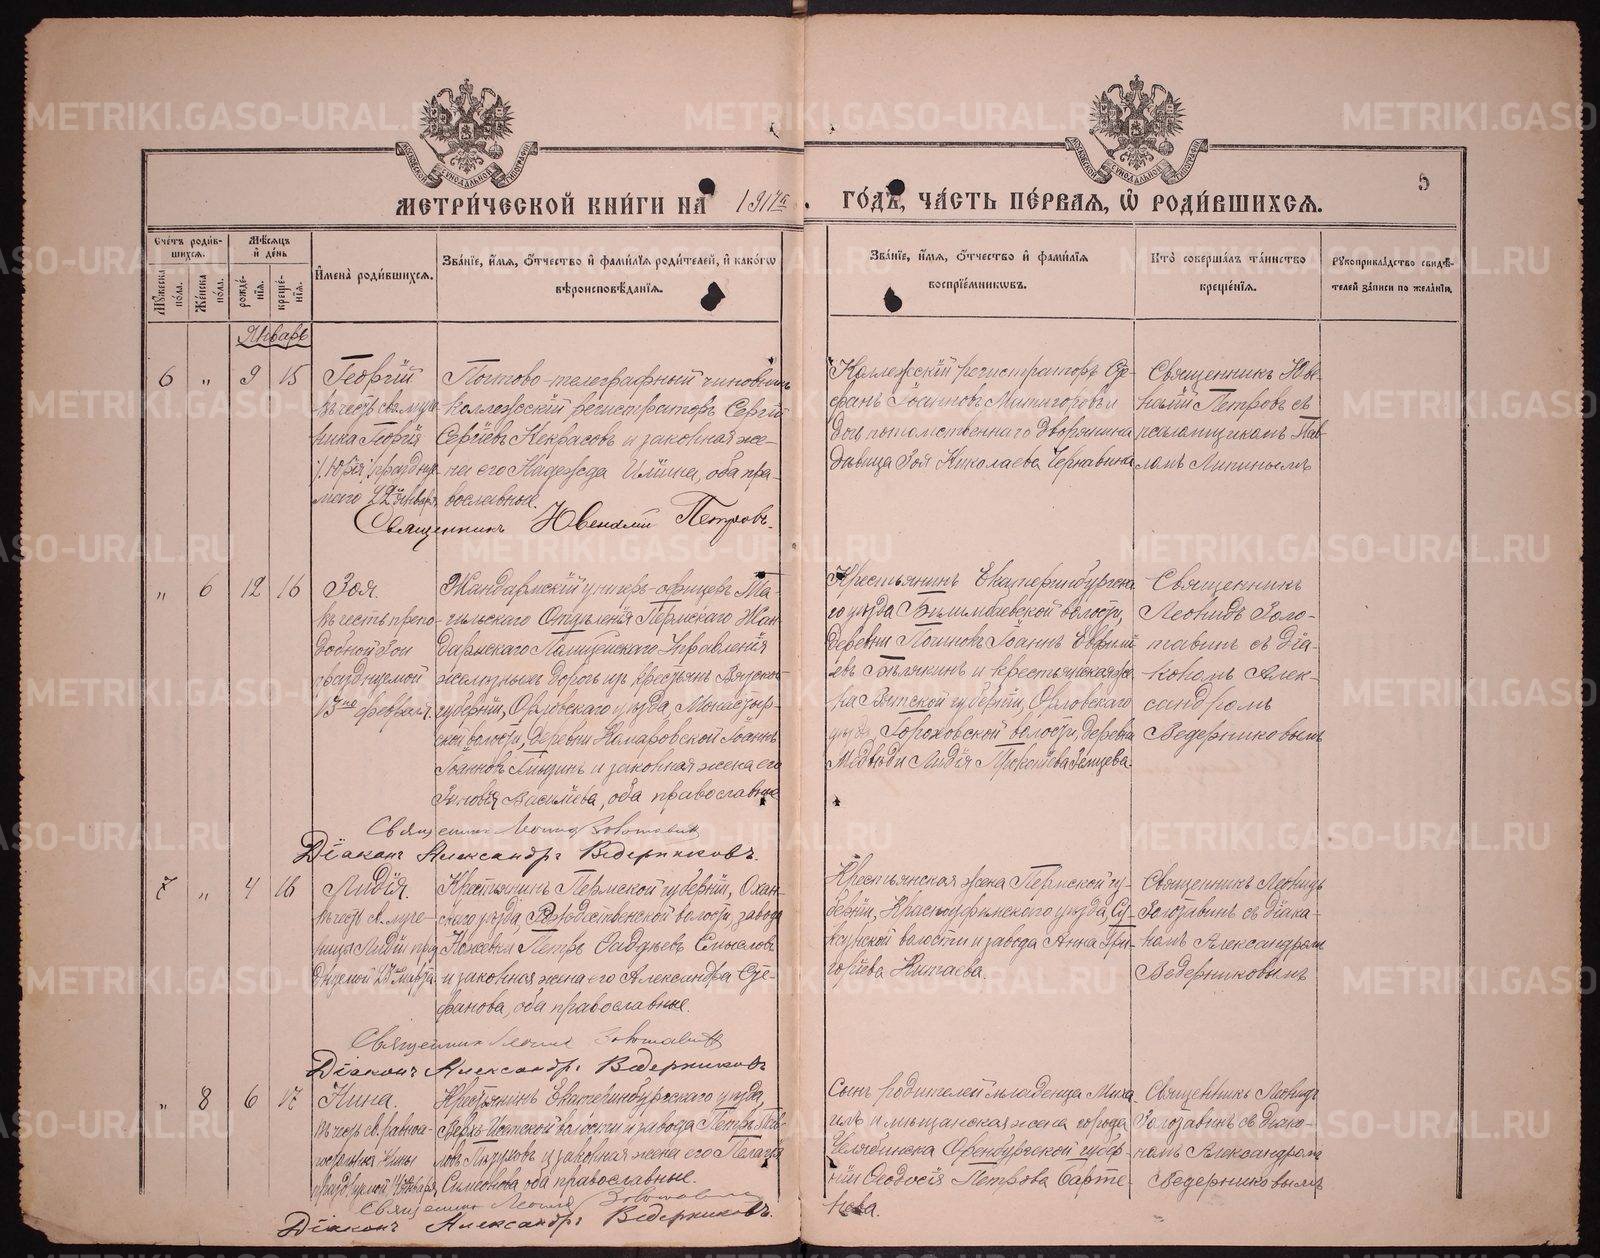 МЕТРИКИ.GASO-URAL.RU
МЕТРИ́ЧЕСКОЙ КНИ́ГИ НА 1914й
ГО́ДЪ, ЧА́СТЬ ПЕ́РВАЯ, Ѽ РОДИ́ВШИХСЯ.
5
Счетъ родившихся.
Мужеска пола.
Женска пола.
Мѣсяцъ и день
рожденія.
крещенія.
Имена родившихся.
Званіе, имя, отчество и фамилія родителей, и какогѡ вѣроисповѣданія.
Званіе, имя, отчество и фамилія воспріемниковъ.
Кто совершалъ таинство крещенія.
Рукоприкладство свидѣтелей записи по желанію.
Январь
6 " 9 15
Георгій
въ честь св. муче-
ника Георгія
празднуе-
маго 22 января
Почтово-телеграфный чиновникъ
коллежскій регистраторъ Сергій
Сергіевъ Некрасовъ и законная же-
на его Надежда Иліина, оба пра-
вославные.
Священникъ Ювеналій Петровъ.
Коллежскій регистраторъ Сте-
фанъ Іоанновъ и
дочь потомственнаго дворянина
дѣвица Зоя Николаева Чернавина
Священникъ Юве-
налій Петровъ съ
псаломщикомъ Пав-
ломъ Липинымъ
" 6 12 16
Зоя.
въ честь препо-
добной Зои
празднуемой
13го февраля.
Жандармскій унтеръ-офицеръ Та-
гильскаго Отдѣленія Пермскаго Жан-
дармскаго Полицейскаго Управленія
желѣзныхъ дорогъ изъ крестьянъ Вятской
губерніи, Орловскаго уѣзда Монастыр-
ской волости, деревни Комаровской Іоаннъ
Іоанновъ и законная жена его
Зиновія Василіева, оба православные
Священникъ Леонидъ Золотавинъ
Діаконъ Александръ Ведерниковъ.
Крестьянинъ Екатеринбургска-
го уѣзда Билимбаевской волости,
деревни Іоаннъ
Бѣлякинъ и крестьянская же-
на Вятской губерніи, Орловскаго
уѣзда, Гороховской волости, деревни
Медвѣди Лидія Прокопіева
Священникъ
Леонидъ Золо-
тавинъ съ діа-
кономъ Алек-
сандромъ
Ведерниковымъ
7 " 4 16
Лидія.
въ честь св. муче-
ницы Лидіи праз-
днуемой 23 марта
Крестьянинъ Пермской губерніи, Охан-
скаго уѣзда, Рождественской волости, завода
Ножовки Петръ Смысловъ
и законная жена его Александра Сте-
фанова, оба православные.
Священникъ Леонидъ Золотавинъ
Діаконъ Александръ Ведерниковъ
Крестьянская жена Пермской гу-
берніи, Красноуфимскаго уѣзда, Су-
ксунской волости и завода Анна Гри-
горіева Китаева.
Священникъ Леонидъ
Золотавинъ съ діако-
номъ Александромъ
Ведерниковымъ
" 8 6 17
Нина.
въ честь св. равноа-
постольныя Нины
празднуемой 14 января
Крестьянинъ Екатеринбургскаго уѣзда,
Верхъ-Исетской волости и завода Петръ Пав-
ловъ и законная жена его Пелагія
Симеонова оба православные.
Священникъ Леонидъ Золотавинъ
Діаконъ Александръ Ведерниковъ.
Сынъ родителей младенца Миха-
илъ и мѣщанская жена города
Челябинска Оренбургской губер-
ніи Ѳеодосія Петрова Барте-
нева.
Священникъ Леонидъ
Золотавинъ съ діако-
номъ Александромъ
Ведерниковымъ